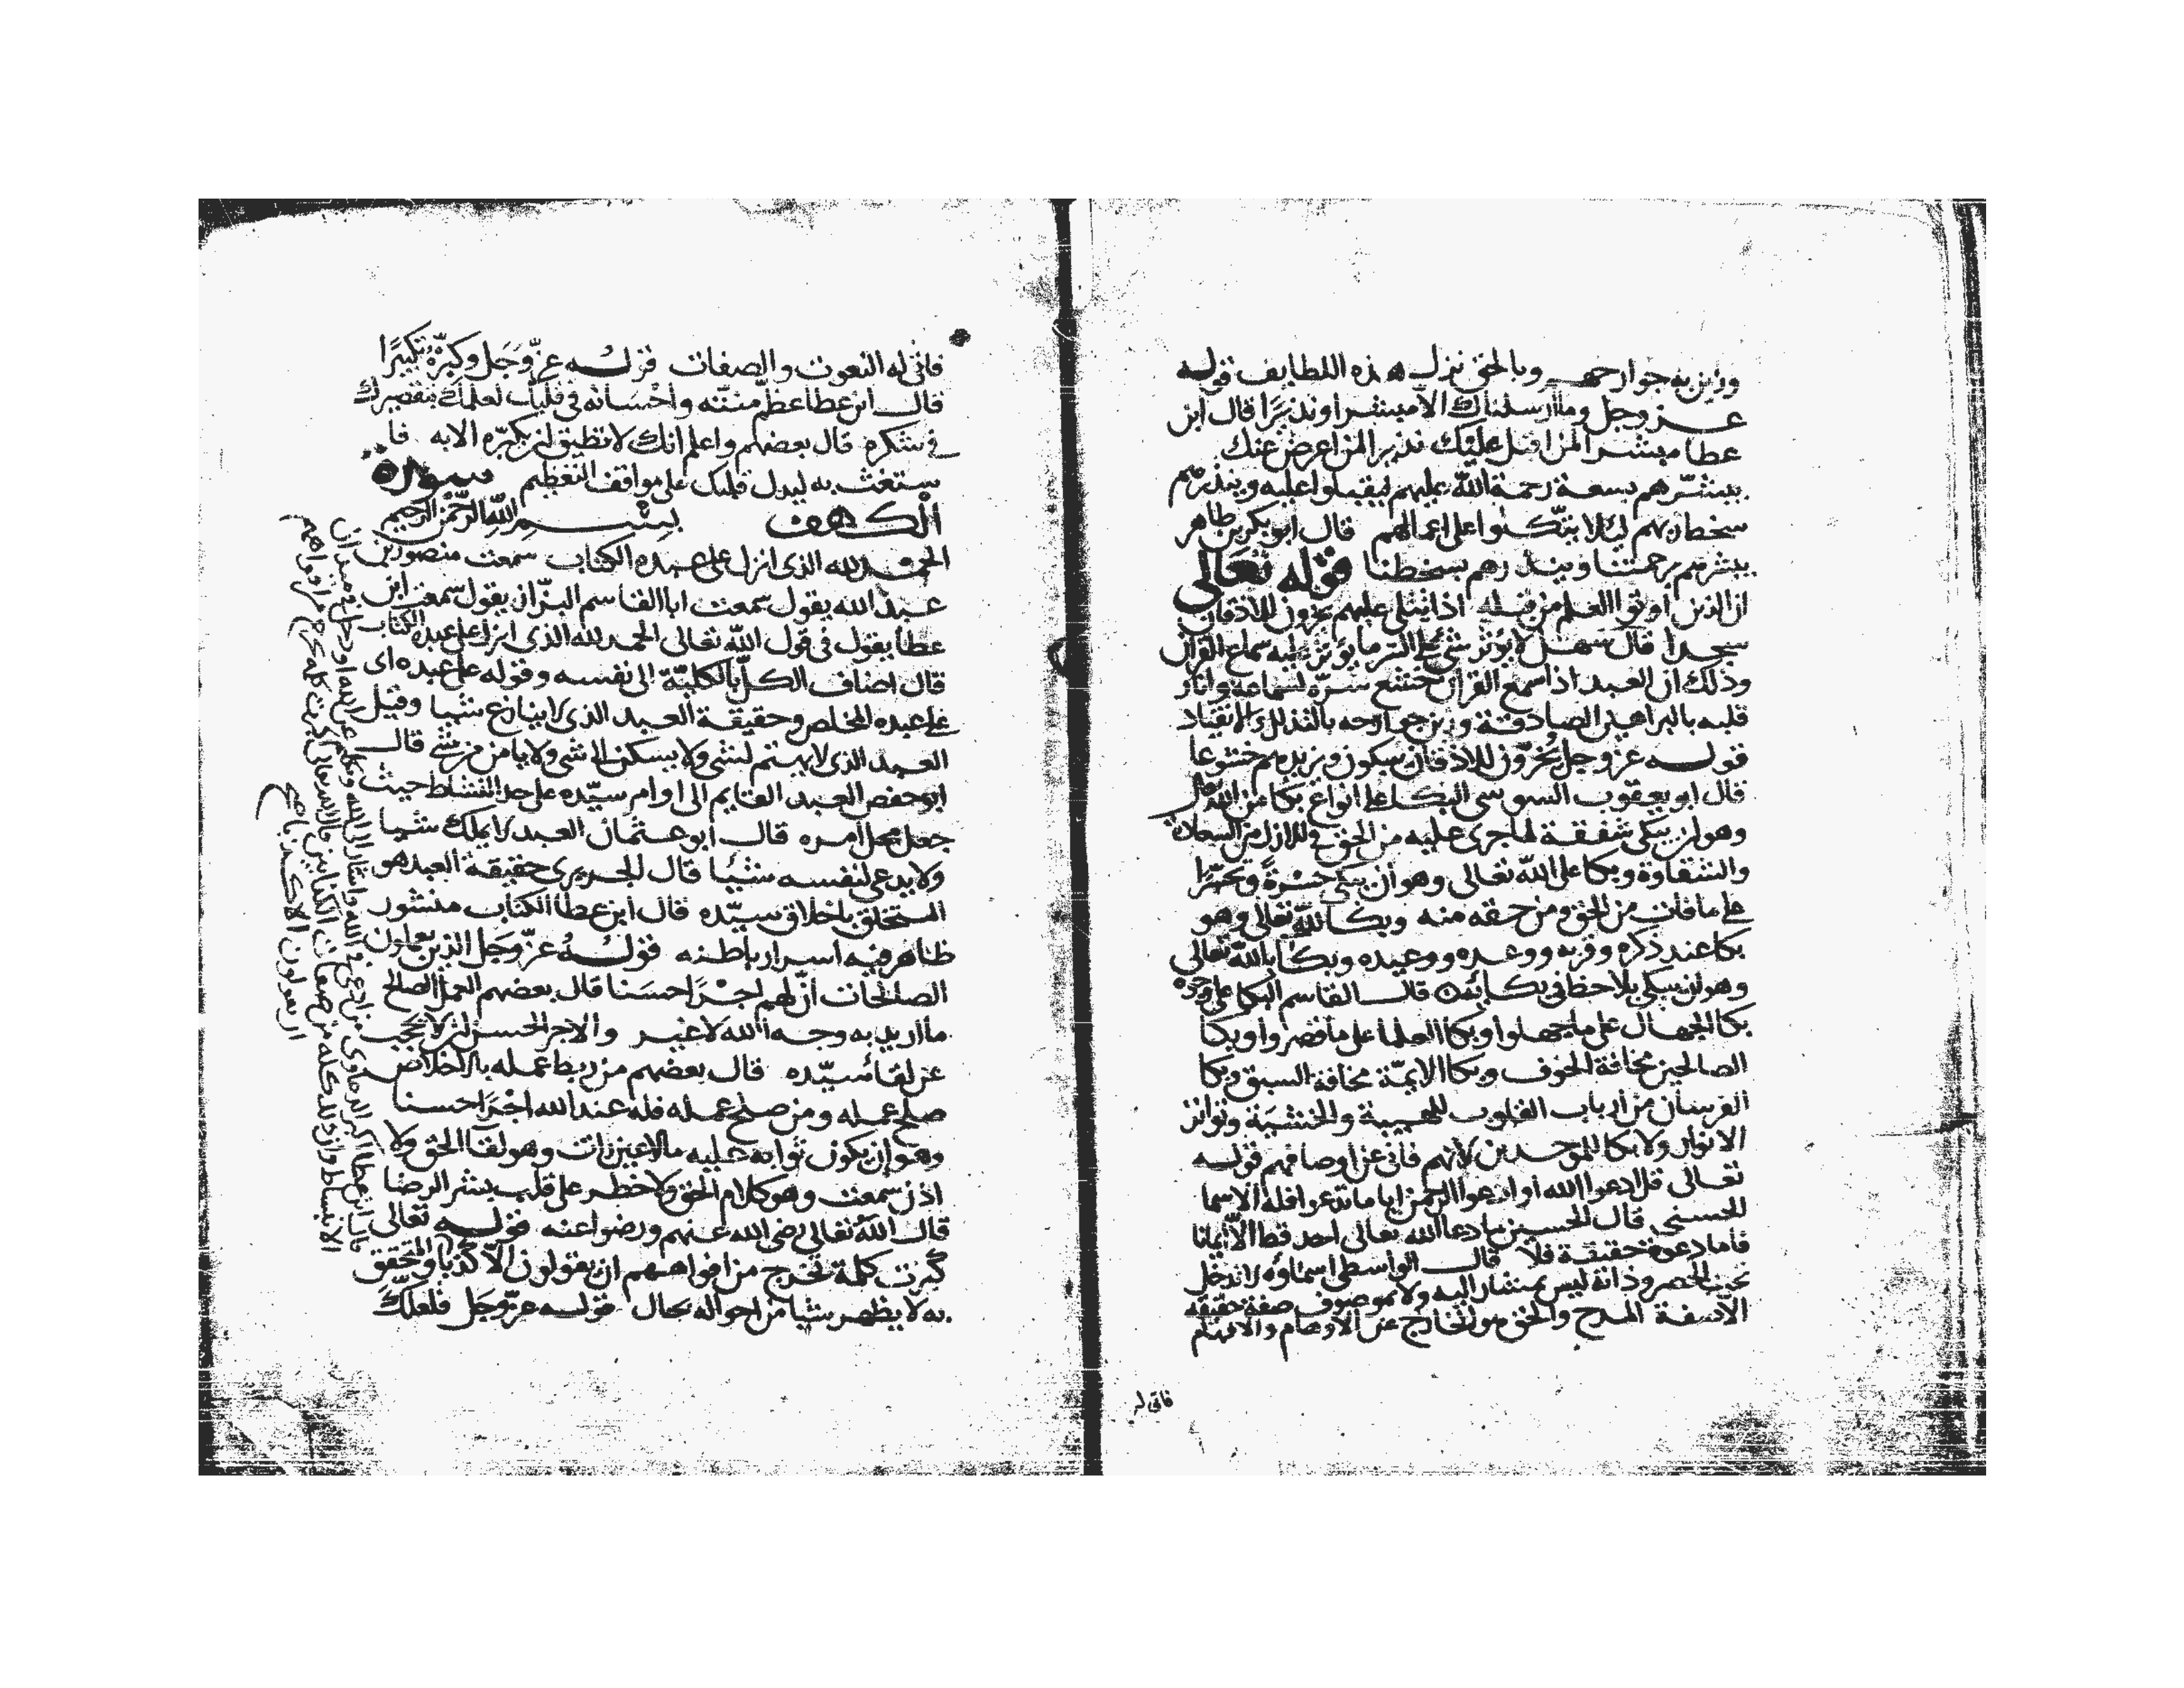 وزين به جوارحهم وبالحق نزل هذه اللطايف قوله
عز وجل وما أرسلناك الا مبشرا ونذيرا قال ابن
عطا مبشرا لمن اقبل عليك نذيرا لمن اعرض عنك
يبشرهم بسعة رحمة الله عليهم ليقبلوا عليه وينذرهم
سخطه بهم ليلا يتكلوا على اعمالهم قال ابو بكر بن طاهر
يبشرهم برحمتنا وينذرهم بسخطنا قوله تعالى
ان الذين اوتوا العلم من قبله اذا يتلى عليهم يخرون للاذقان
سجدا قال سهل لا يؤثر شي على السر ما يؤثر عليه سماع القران
وذلك ان العبد اذا سمع القران خشع سره لسماعه وانار
قلبه بالبراهين الصادقة وزين جوارحه بالتذلل والانقياد
قوله عز وجل يخرون للاذقان يبكون ويزيدهم خشوعا
قال ابو يعقوب السوسي البكا على انواع بكا من الله
وهو ان يبكي شفقة لما جرى عليه من الحق في الازل من السعادة
والشقاوة وبكا على الله تعالى وهو ان يبكي حسرة وتحسرا
على ما فات من الحق ومن حقه منه وبكا لله تعالى وهو
بكا عند ذكره وقربه ووعده ووعيده وبكا بالله تعالى
وهو ان يبكي بلا حظ في بكائه قال القاسم البكا على وجوه
بكا الجهال على ما جهلوا وبكا العلما على ما قصروا وبكا
الصالحين مخافة الخوف وبكا الايمة مخافة السبق وبكا
الفرسان من ارباب القلوب للهيبة والخشية وتواتر
الانوار ولا بكا للموحدين لانهم فاني عن اوصافهم قوله
تعالى قل ادعوا الله او ادعوا الرحمن ايا ما تدعوا فله الاسما
الحسنى قال الحسين ما دعا الله تعالى احد قط الا ايمانا
فاما دعوة حقيقة فلا قال الواسطي اسماؤه لا تدخل
تحت الحصر وذاته ليس بمشار اليه ولا بموصوف صفة حقيقة
الا صفة المدح والحق هو الخارج عن الاوهام والافهام
فانى له
فانى له النعوت والصفات قوله عز وجل وكبره تكبيرا
قال ابن عطا عظم منته واحسانه في قلبك لعلمك بتقصيرك
في شكره قال بعضهم واعلم انك لا تطيق ان تكبره الا به فا
ستغث به ليدل قلبك على مواقف التعظيم سورة
الكهف بسم الله الرحمن الرحيم
الحمد لله الذي انزل على عبده الكتاب سمعت منصور بن
عبد الله يقول سمعت ابا القاسم البزاز يقول سمعت ابن
عطا يقول في قول الله تعالى الحمد لله الذي انزل على عبده الكتاب
قال اضاف الكل بالكلية الى نفسه وقوله على عبده اى
على عبده المخلص وحقيقة العبد الذى لا ينازع شيا وقيل
العبد الذى لا يهتم لشى ولا يسكن الى شى ولا يامن من شى قال
ابو حفص العبد القايم الى اوامر سيده على حد النشاط حيث
جعل محل امره قال ابو عثمان العبد لا يملك شيا
ولا يدعي لنفسه شيئا قال الجريرى حقيقة العبد هو
المتخلق باخلاق سيده قال ابن عطا الكتاب منشور
ظاهر فيه اسرار باطنه قوله عز وجل الذين يعملون
الصالحات ان لهم اجرا حسنا قال بعضهم العمل الصالح
ما اريد به وجه الله لا غير والاجر الحسن ان لا تحجب
عن لقا سيده قال بعضهم من ربط عمله بالاخلاص
صلح عمله ومن صلح عمله فله عند الله اجرا حسنا
وهو ان يكون ثوابه عليه ما لا عين رات وهو لقا الحق ولا
اذن سمعت وهو كلام الحق ولا خطر على قلب بشر الرضا
قال الله تعالى رضى الله عنهم ورضوا عنه قوله تعالى
كبرت كلمة تخرج من افواههم ان يقولون الا كذبا والمتحقق
به لا يظهر شيا من احواله بحال قوله عز وجل فلعلك
قال ابن عطا اكبر الدعاوى من ادعى في الله واشار الى الله وتكلم عن الله
الانبساط وان ذلك كله من صفات الكذابين قال الله تعالى كبرت كلمة تخرج من افواههم
ان يقولون الا كذبا صح